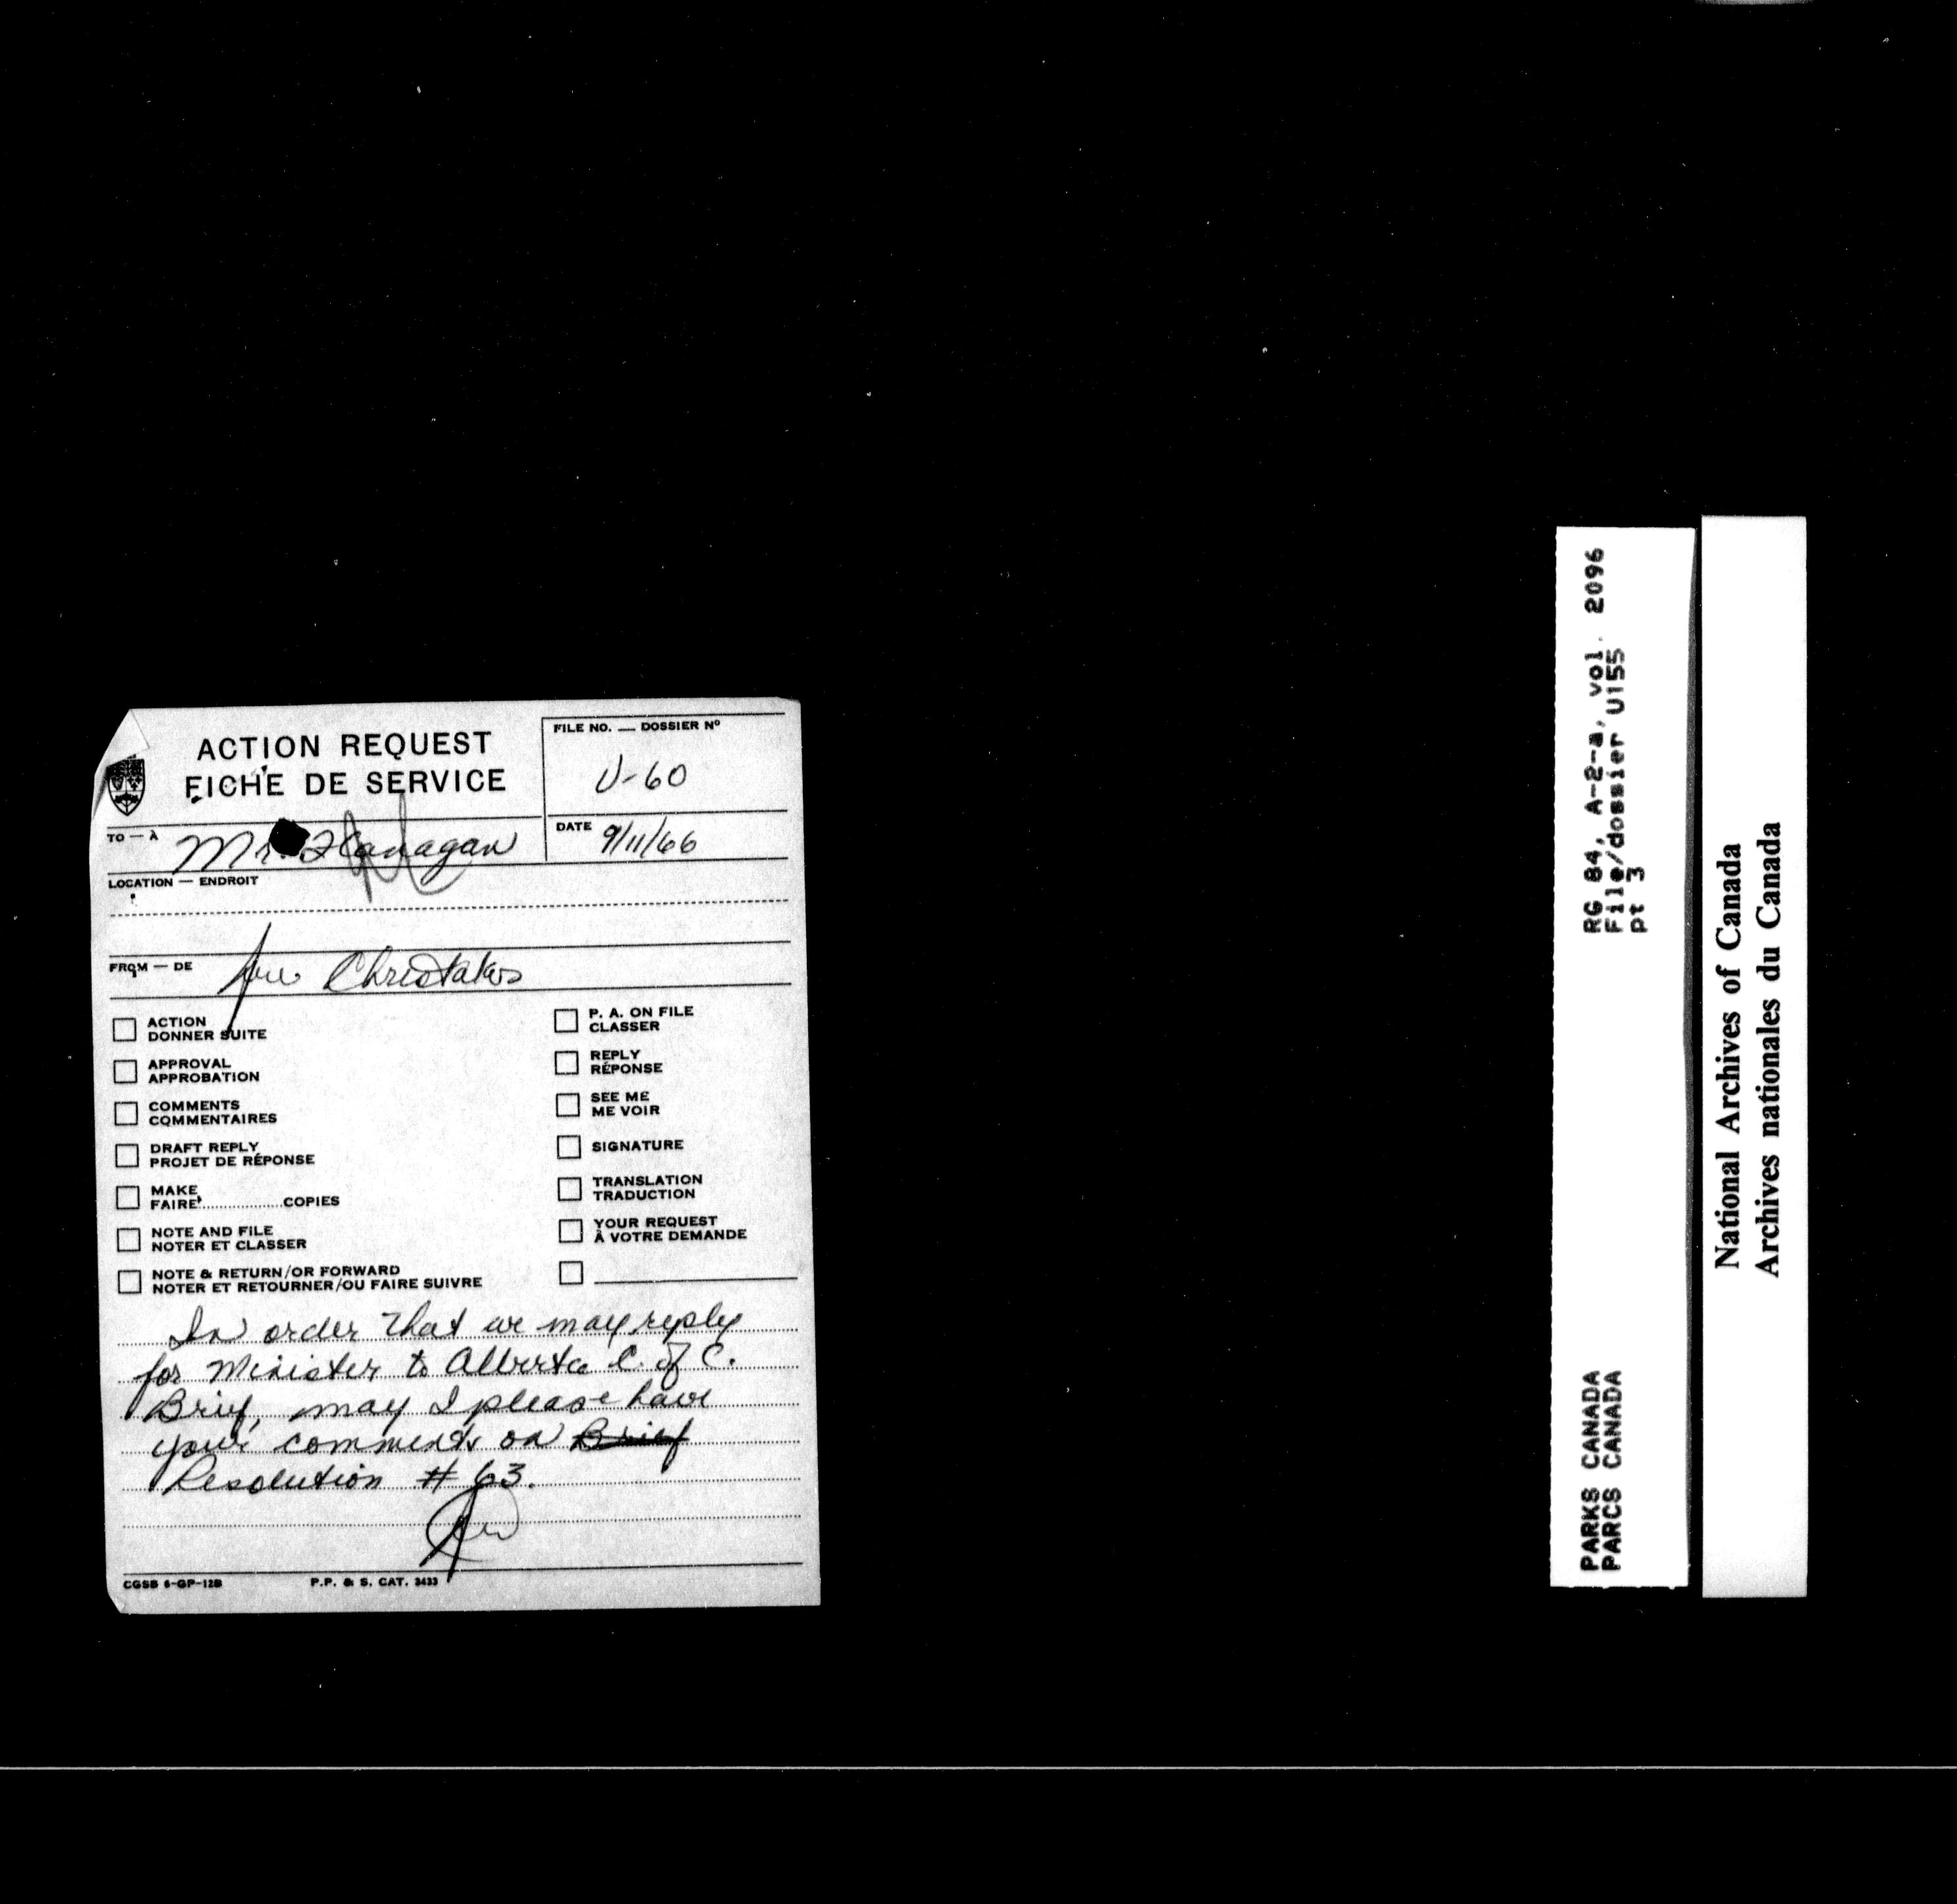 ACTION REQUEST
FICHE DE SERVICE
FILE NO. — DOSSIER Nº
U-60
TO — À Mr. Flanagan
DATE 9/11/66
LOCATION — ENDROIT
FROM — DE Christakos
ACTION
DONNER SUITE
APPROVAL
APPROBATION
COMMENTS
COMMENTAIRES
DRAFT REPLY
PROJET DE RÉPONSE
MAKE
FAIRE..................COPIES
NOTE AND FILE
NOTER ET CLASSER
NOTE & RETURN/OR FORWARD
NOTER ET RETOURNER/OU FAIRE SUIVRE
P. A. ON FILE
CLASSER
REPLY
RÉPONSE
SEE ME
ME VOIR
SIGNATURE
TRANSLATION
TRADUCTION
YOUR REQUEST
À VOTRE DEMANDE
In order that we may reply
for Minister to Alberta C. of C.
Brief, may I please have
your comments on Brief
Resolution # 63.
CGSB 6-GP-12B P.P. & S. CAT. 3433
RG 84, A-2-a, vol. 2096
File/dossier U155
pt 3
PARKS CANADA
PARCS CANADA
National Archives of Canada
Archives nationales du Canada